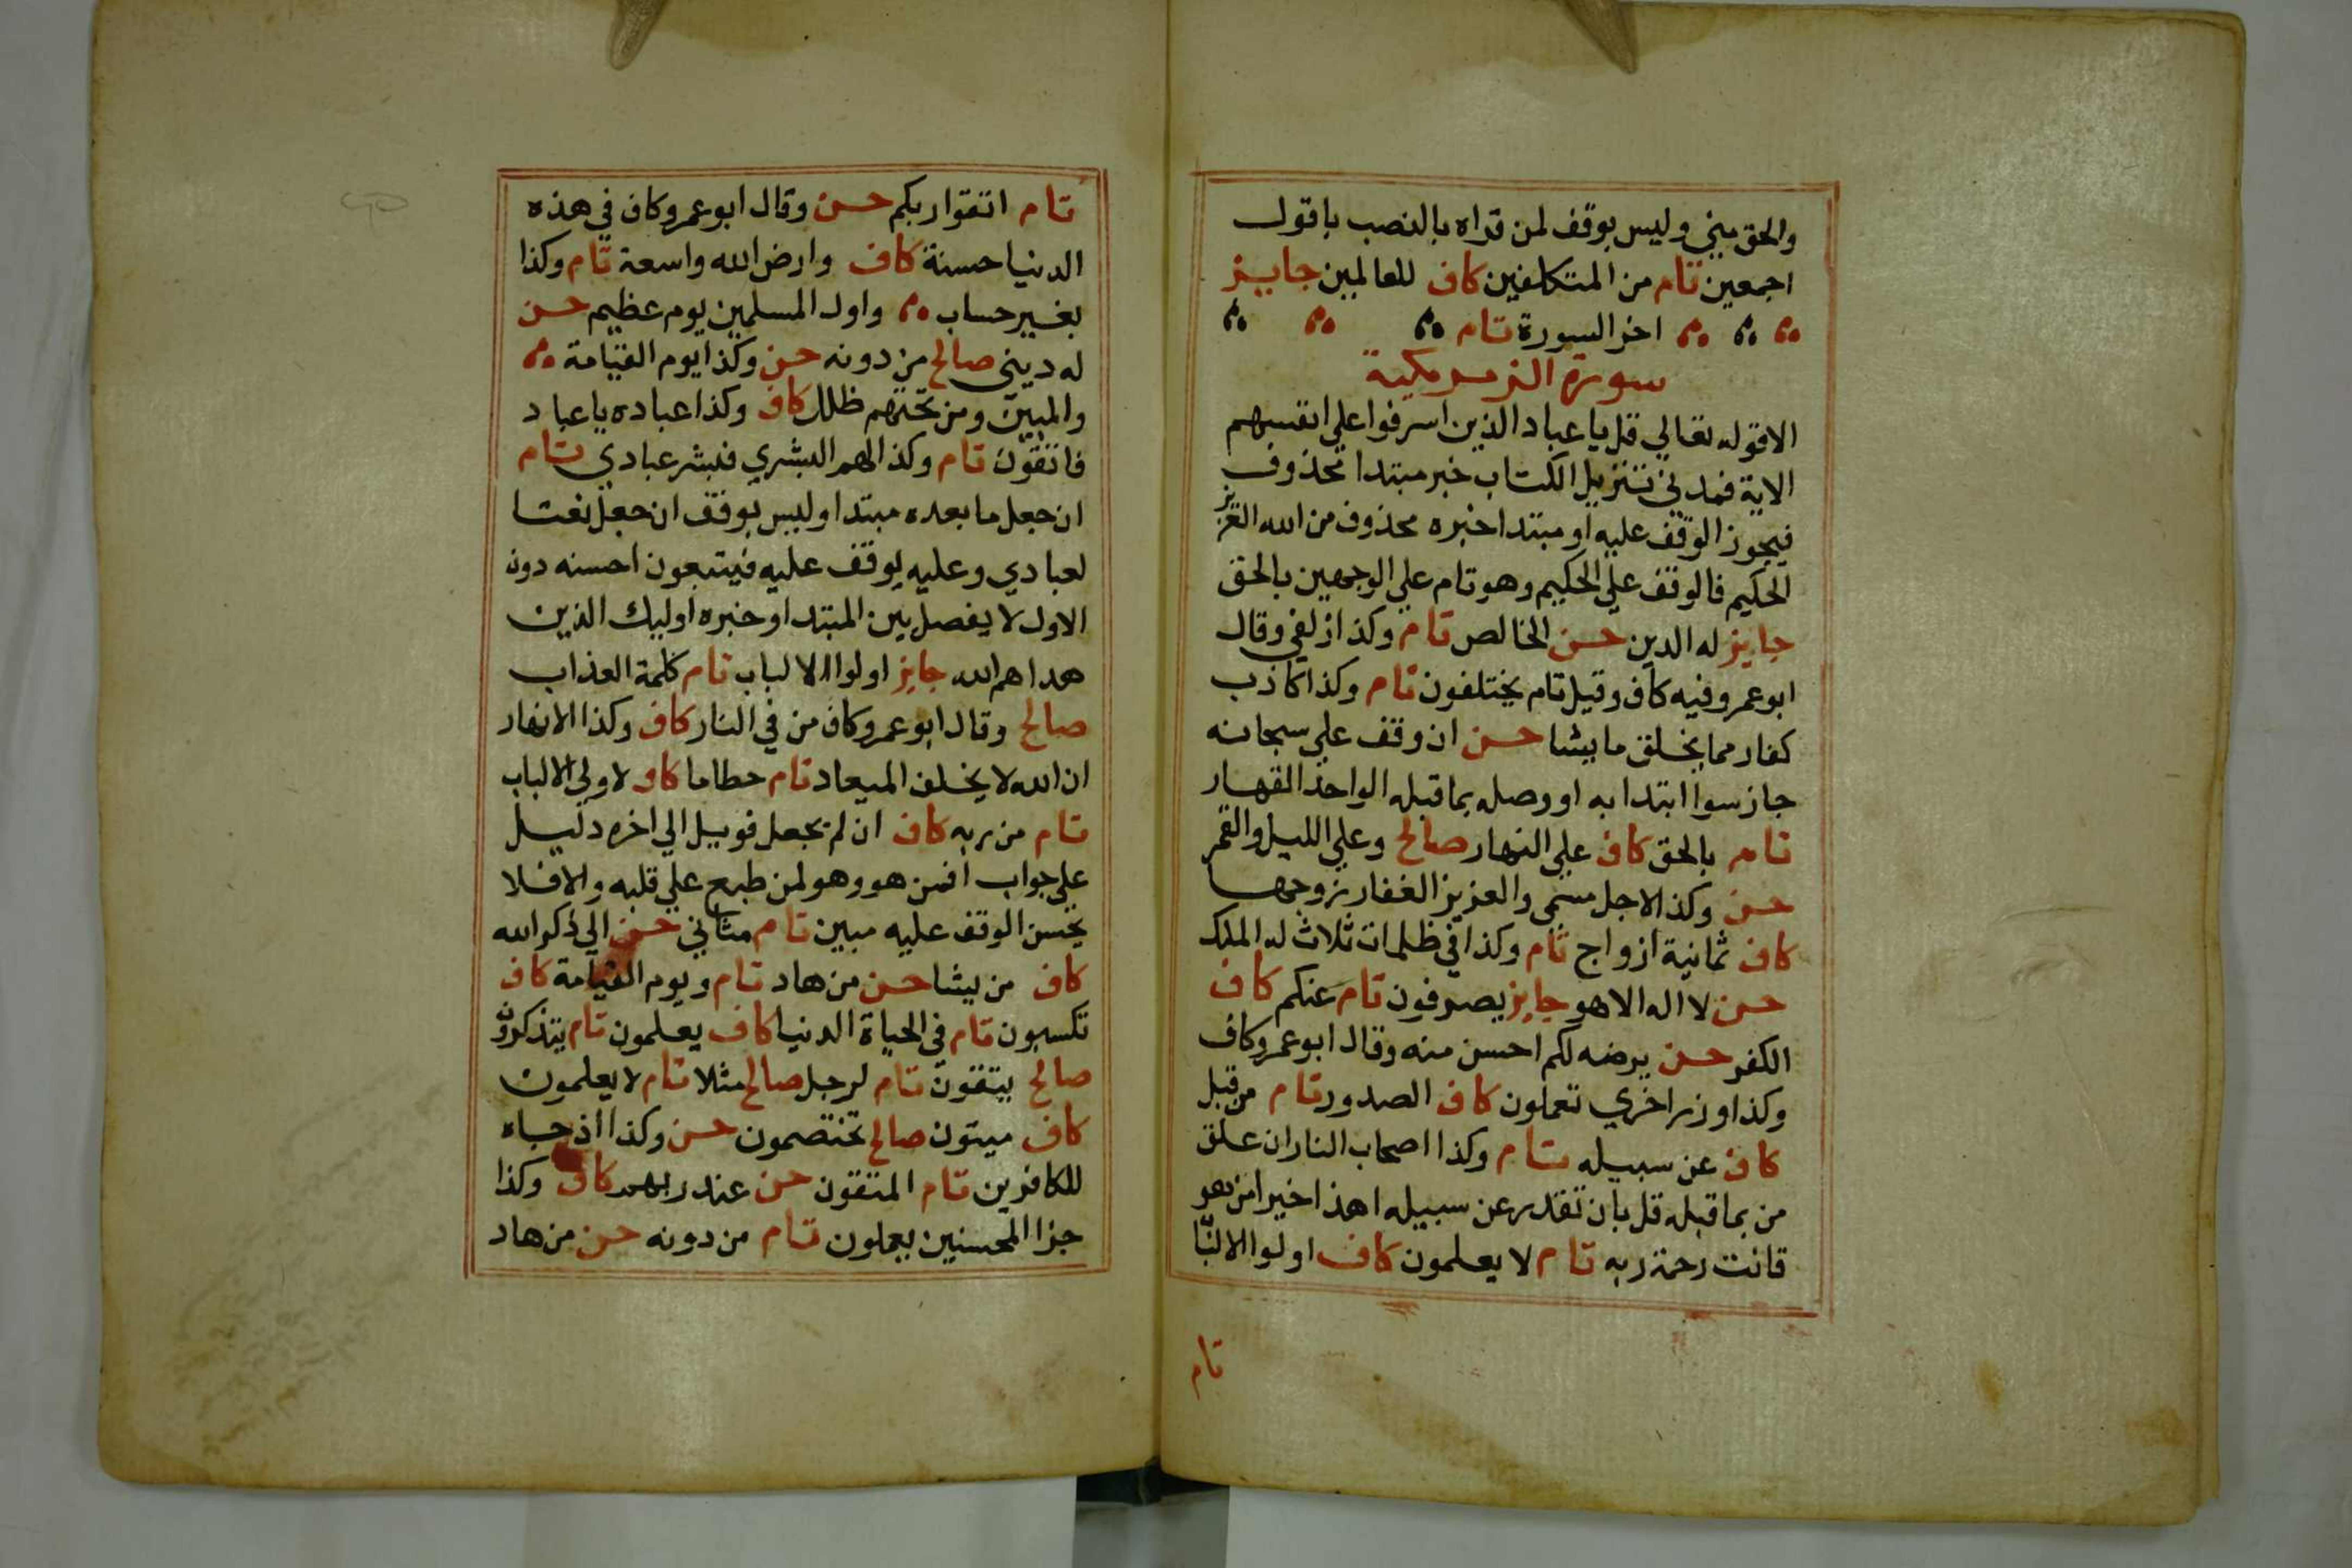 والحق مني وليس بوقف لمن قراه بالنصب باقول
اجمعين تام من المتكلفين كاف للعالمين جايز
اخر السورة تام
سورة الزمر مكية
الا قوله تعالي قل يا عباد الذين اسرفوا علي انفسهم
الاية فمدني تنزيل الكتاب خبر مبتدا محذوف
فيجوز الوقف عليه او مبتدا خبره محذوف من الله العزيز
الحكيم فالوقف علي الحكيم وهو تام علي الوجهين بالحق
جايز له الدين حسن الخالص تام وكذا زلفي وقال
ابو عمرو فيه كاف وقيل تام يختلفون تام وكذا كاذب
كفار مما يخلق ما يشا حسن ان وقف علي سبحانه
جاز سوا ابتدا به او وصله بما قبله الواحد القهار
تام بالحق كاف علي النهار صالح وعلي الليل والقمر
حسن وكذا لاجل مسمي والعزيز الغفار زوجها
كاف ثمانية ازواج تام وكذا في ظلمات ثلاث له الملك
حسن لا اله الا هو جايز يصرفون تام عنكم كاف
الكفر حسن يرضه لكم احسن منه وقال ابو عمرو كاف
وكذا وزر اخري تعملون كاف الصدور تام من قبل
كاف عن سبيله تام وكذا اصحاب النار ان علق
من بما قبله قل بان تقدر عن سبيله اهذا خير امن هو
قانت رحمة ربه تام لا يعلمون كاف اولوا الالبا
تام
تام اتقوا ربكم حسن وقال ابو عمرو كاف في هذه
الدنيا حسنة كاف وارض الله واسعة تام وكذا
بغير حساب واول المسلمين يوم عظيم حسن
له ديني صالح من دونه حسن وكذا يوم القيامة
والمبين ومن تحتهم ظلل كاف وكذا عباده يا عباد
فاتقون تام وكذا لهم البشري فبشر عبادي تام
ان جعل ما بعده مبتدا وليس بوقف ان جعل نعتا
لعبادي وعليه يوقف عليه فيتبعون احسنه دون
الاول لا يفصل بين المبتدا وخبره اوليك الذين
هداهم الله جايز اولوا الالباب تام كلمة العذاب
صالح وقال ابو عمرو كاف من في النار كاف وكذا الانهار
ان الله لا يخلف الميعاد تام حطاما كاف لاولي الالباب
تام من ربه كاف ان لم يجعل فويل الي اخره دليل
علي جواب افمن هو وهو لمن طبع علي قلبه والا فلا
يحسن الوقف عليه مبين تام مثاني حسن الي ذكر الله
كاف من يشا حسن من هاد تام ويوم القيامة كاف
تكسبون تام في الحياة الدنيا كاف يعلمون تام يتذكرون
صالح يتقون تام لرجل صالح مثلا تام لا يعلمون
كاف ميتون صالح تختصمون حسن وكذا اذ جاه
للكافرين تام المتقون حسن عند ربهم كاف وكذا
جزا المحسنين يعملون تام من دونه حسن من هاد